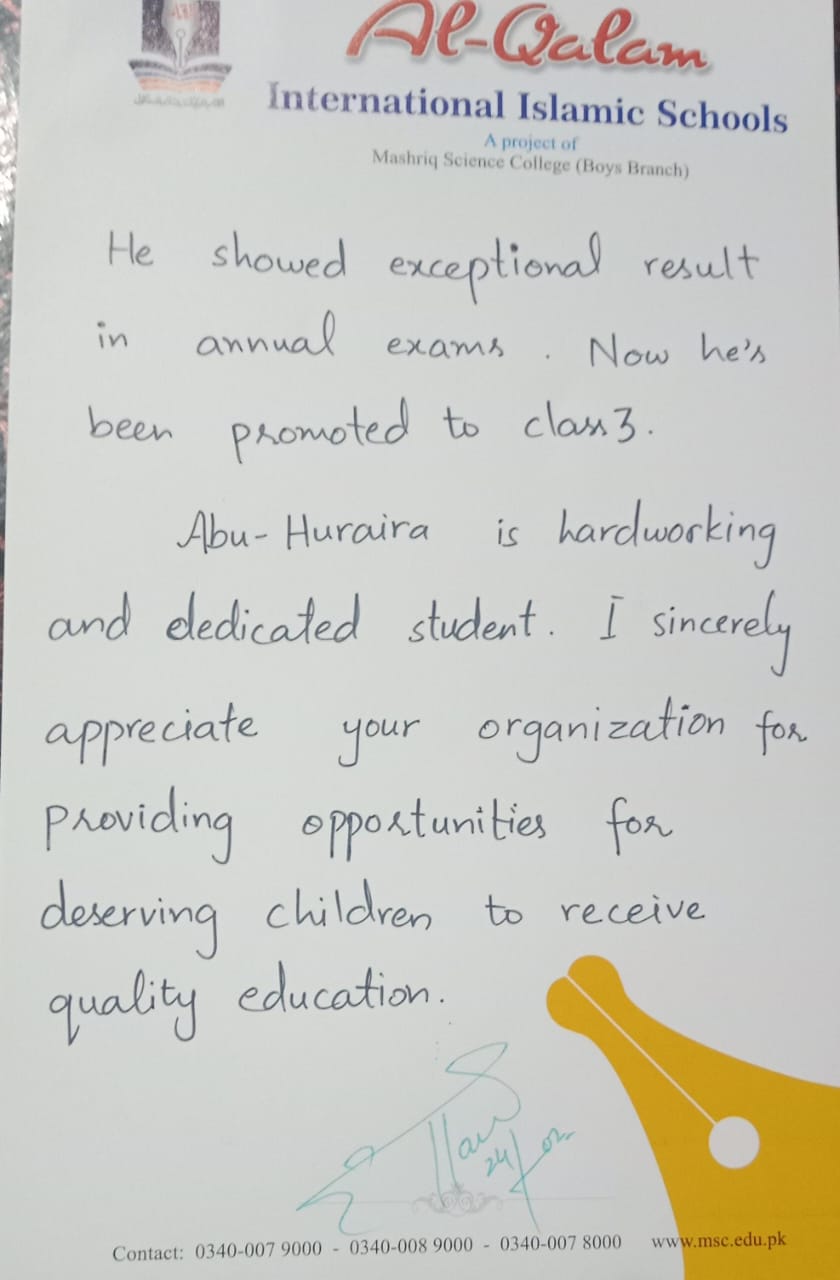 Al-Qalam
International Islamic Schools
A project of
Mashriq Science College (Boys Branch)
He showed exceptional result
in annual exams. Now he's
been promoted to class 3.
Abu-Huraira is hardworking
and dedicated student. I sincerely
appreciate your organization for
providing opportunities for
deserving children to receive
quality education.
24/02
Contact: 0340-007 9000 - 0340-008 9000 - 0340-007 8000 www.msc.edu.pk